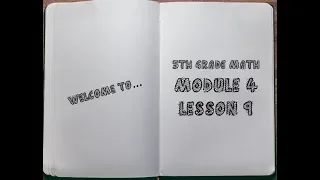 WELCOME TO...
5TH GRADE MATH
MODULE 4
LESSON 9